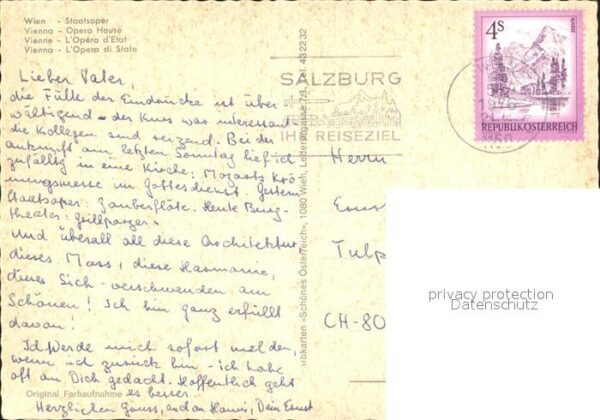 Wien - Staatsoper
Vienna - Opera House
Vienne - L'Opéra d'Etat
Vienna - L'Opera di Stato
Lieber Vater,
die Fülle der Eindrücke ist über
wältigend - der Kurs war interessant
die Kollegen sind reizend. Bei der
Ankunft am letzten Sonntag lief ich
zufällig in eine Kirche: Mozarts Krö
nungsmesse im Gottesdienst. Gestern
Staatsoper: Zauberflöte. Heute Burg-
theater: Grillparzer.
Und überall all diese Architektur,
dieses Mass, diese Harmonie,
dieses Sich-verschwenden am
Schönen! Ich bin ganz erfüllt
davon!
Ich werde mich sofort melden,
wenn ich zurück bin - ich habe
oft an Dich gedacht. Hoffentlich geht
es besser.
Herzlichen Gruss, auch an Dein Ernst
Original Farbaufnahme
rbkarten »Schönes Österreich«, 1080 Wien, Lederergasse 7/1, Tel. 43 22 32
SALZBURG
IHR REISEZIEL
4S
REPUBLIK ÖSTERREICH
1150
Herrn
Ernst
Tulp
CH-80
privacy protection
Datenschutz